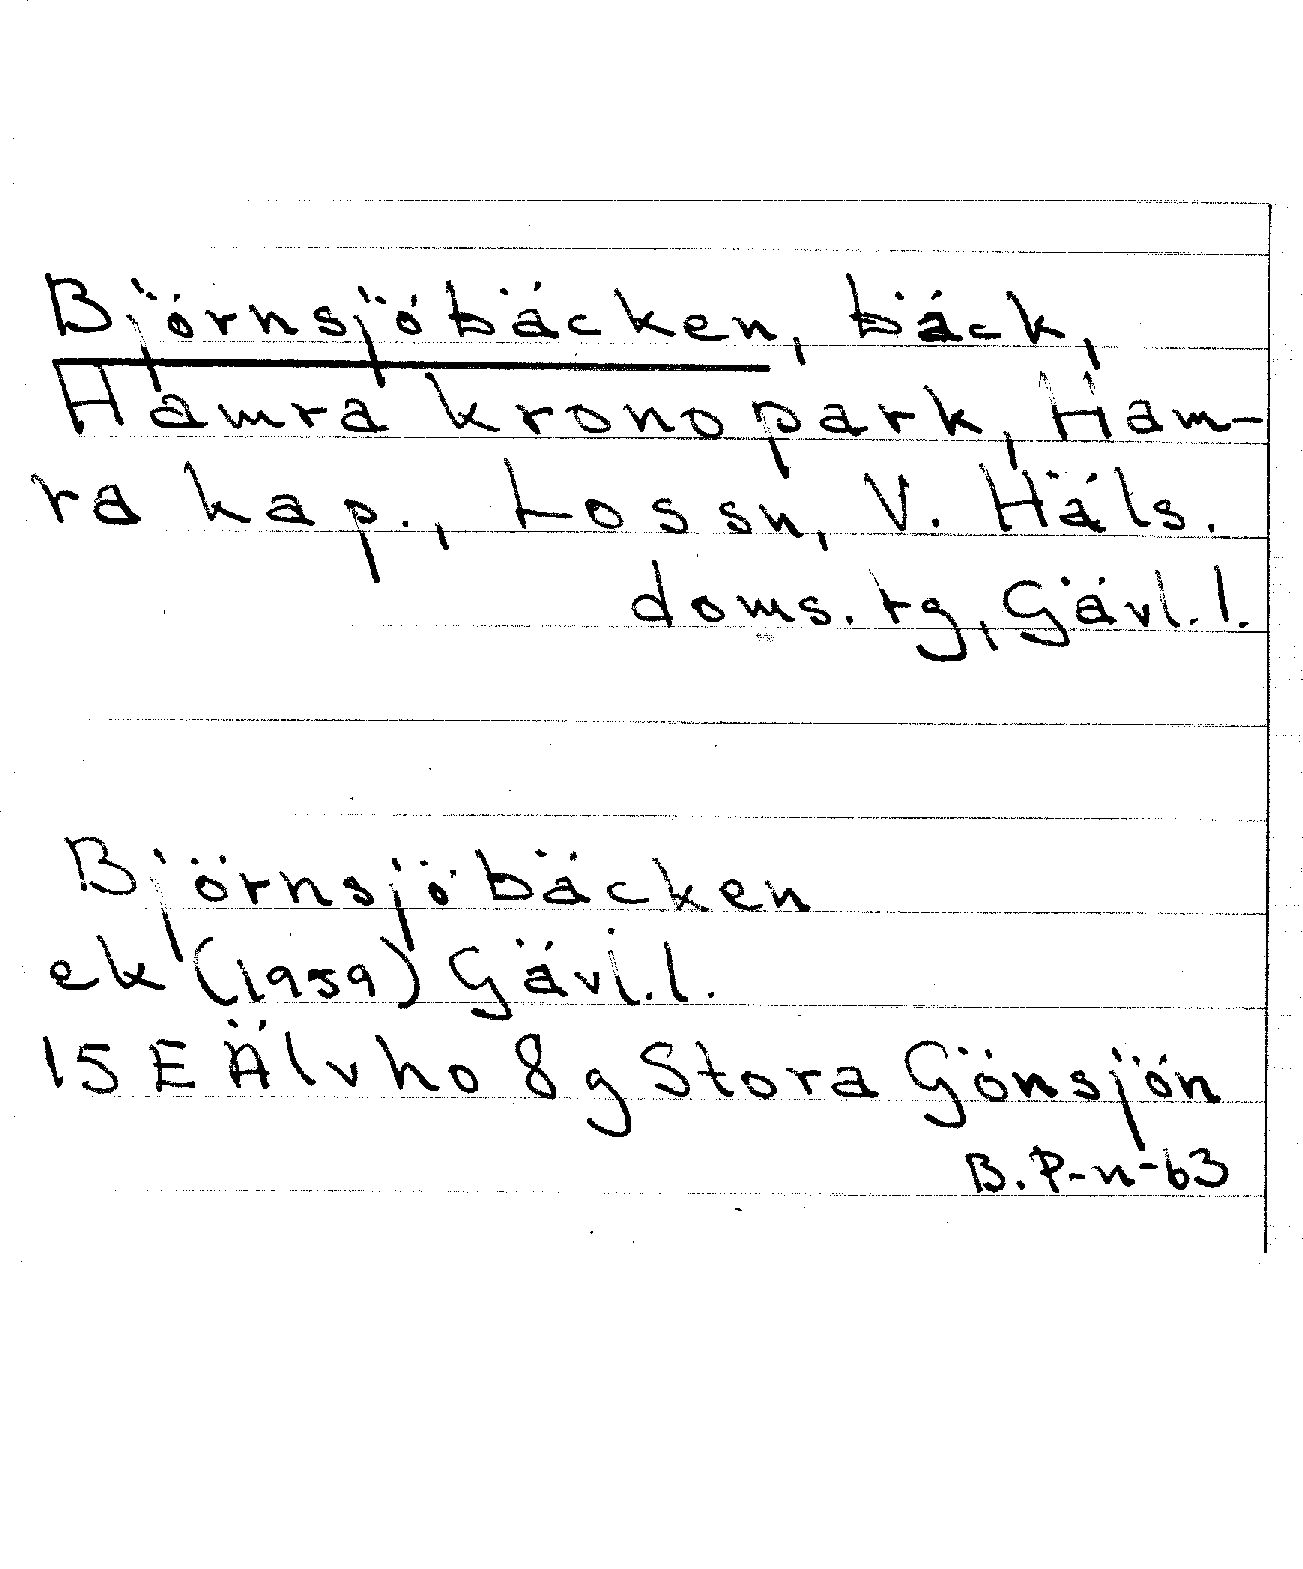 Björnsjöbäcken, bäck,
Hamra kronopark, Ham-
ra kap., Lossn, V. Häls.
doms. tg, Gävl. l.
Björnsjöbäcken
ek (1959) Gävl. l.
15 E Älvho 8 g Stora Gönsjön
B. P-n-63